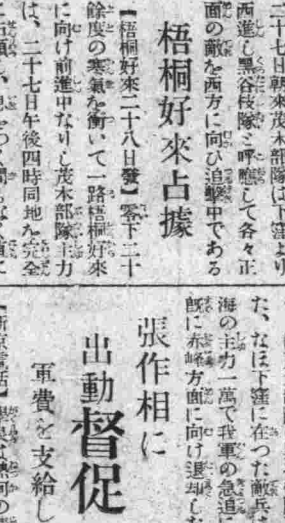 二十七日朝來茂木部隊は下窪より
西進し黑谷枝隊と呼應して各々正
面の敵を西方に向ひ追擊中である
梧桐好來占據
【梧桐好來二十八日發】零下二十
餘度の寒氣を衝いて一路梧桐好來
に向け前進中なりし茂木部隊主力
は、二十七日午後四時同地を完全
た、なほ下窪に在つた敵兵
海の主力一萬で我軍の急追
既に赤峰方面に向け退却し
張作相に
出動督促
軍費を支給し
【新京電話】